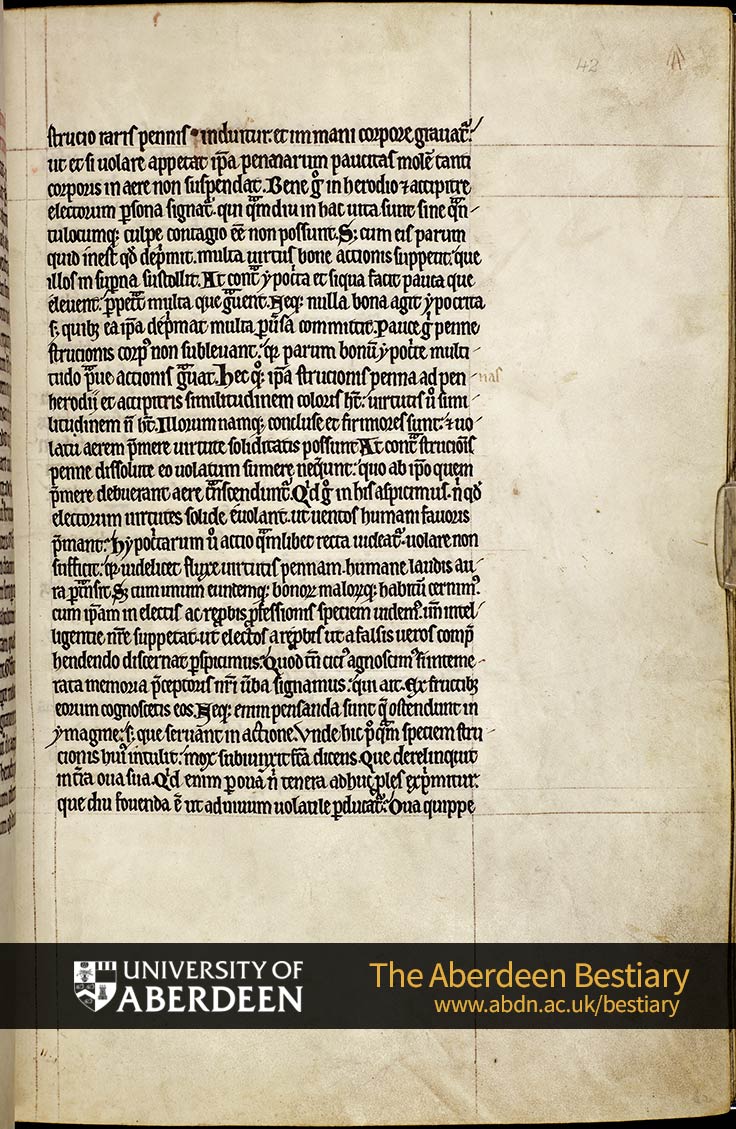 42
strucio raris pennis induitur. et immani corpore grauat᷑.
ut et si uolare appetat ip̄a pennarum paucitas molē tanti
corporis in aere non suspendat. Bene gͦ in herodio ⁊ accipitre
electorum ꝑsona signat᷑. qui qͣmdiu in hac uita sunt sine qͣn-
tulocumq; culpe contagio eē̄ non possunt. S; cum eis parum
quid inest qd̄ dep̄mit. multa uirtus bone actionis suppetit. que
illos in sup̄na sustollit. At contͣ ypoc̄ta et siqua facit pauca que
eleuent. ꝑpetͣt multa que gͣuent. Neq; nulla bona agit ypocrita
s; quibꝫ ea ip̄a dep̄mat multa ꝑuͥsa committit. Pauce gͦ penne
strucionis corpꝰ non subleuant. qꝛ parum bonū ypoc̄te multi-
tudo p̄ue actionis gͣuat. Hec qͦꝫ ip̄a strucionis penna ad pen-nas
herodii et accipitris similitudinem coloris hꝫt. uirtutis ū simi-
litudinem n̄ hꝫt. Illorum namq; concluse et firmiores sunt. ⁊ uo-
latu aerem p̄mere uirtute soliditatis possunt. At contͣ strucioīs
penne dissolute eo uolatum sumere neq̄unt. quo ab ip̄o quem
p̄mere debuerant aere tͣnscendunt᷑. Qͥd gͦ in his aspicimus. n̄ qd̄
electorum uirtutes solide euolant. ut uentos humani fauoris
p̄mant. hypoc̄tarum ū actio qͣmlibet recta uideat᷑. uolare non
sufficit. qꝛ uidelicet fluxe uirtutis pennam. humane laudis au-
ra ꝑtͣnsit. S; cum unum eundemq; bonoꝝ maloꝝq; habitū cernimꝰ.
cum ip̄am in electis ac rep̄bis ꝓfessionis speciem uidemꝰ. un̄ intel-
ligentie nr̄e suppetat. ut electos a rep̄bis ut a falsis ueros comp̄-
hendendo discernat ꝑspicimus. Quod tn̄ ciciꝰ agnoscimꝰ si inteme-
rata memoria p̄ceptoris nr̄i ūba signamus. qui ait. Ex fructibꝫ
eorum cognoscetis eos. Neq; enim pensanda sunt q̄ ostendunt in
ymagine. s; que seruant᷑ in actione. Vnde hic pꝰqͣm speciem stru-
cionis huiꝰ intulit. mox subiunxit fc̄a dicens. Que derelinquit
in t͛ra oua sua. Qͥd enim ꝑ oua n̄ tenera adhuc ꝓles exp̄mitur.
que diu fouenda ē ut ad uiuum uolatile ꝑducat᷑. Oua quippe
UNIVERSITY OF
ABERDEEN
The Aberdeen Bestiary
www.abdn.ac.uk/bestiary